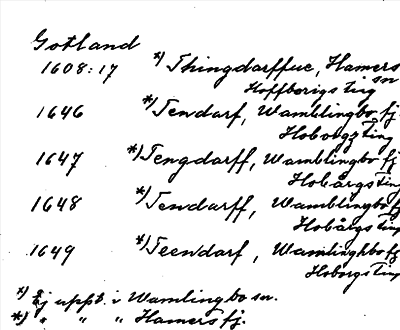 Gotland
1608:17 *) Thingdarffue, Hamers sn
Hoffborigs Ting
1646 *) Tendarf, Wamblingbo fj.
Hoborgz Ting
1647 *) Tengdarff, Wamblingbo fj
Hobårgs Ting
1648 *) Tendarff, Wamblingbo fj
Hobårgs Ting
1649 *) Teendarf, Wamlinghbo fj
Hoborgs Ting
*) Ej uppt. i Wamlingbo sn.
*) " " " Hamers fj.